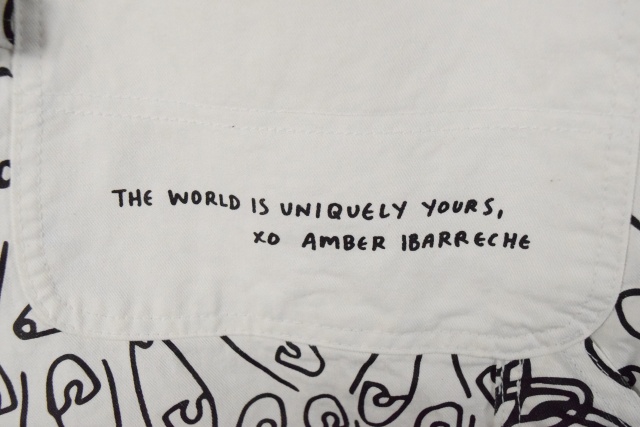 THE WORLD IS UNIQUELY YOURS,
XO AMBER IBARRECHE